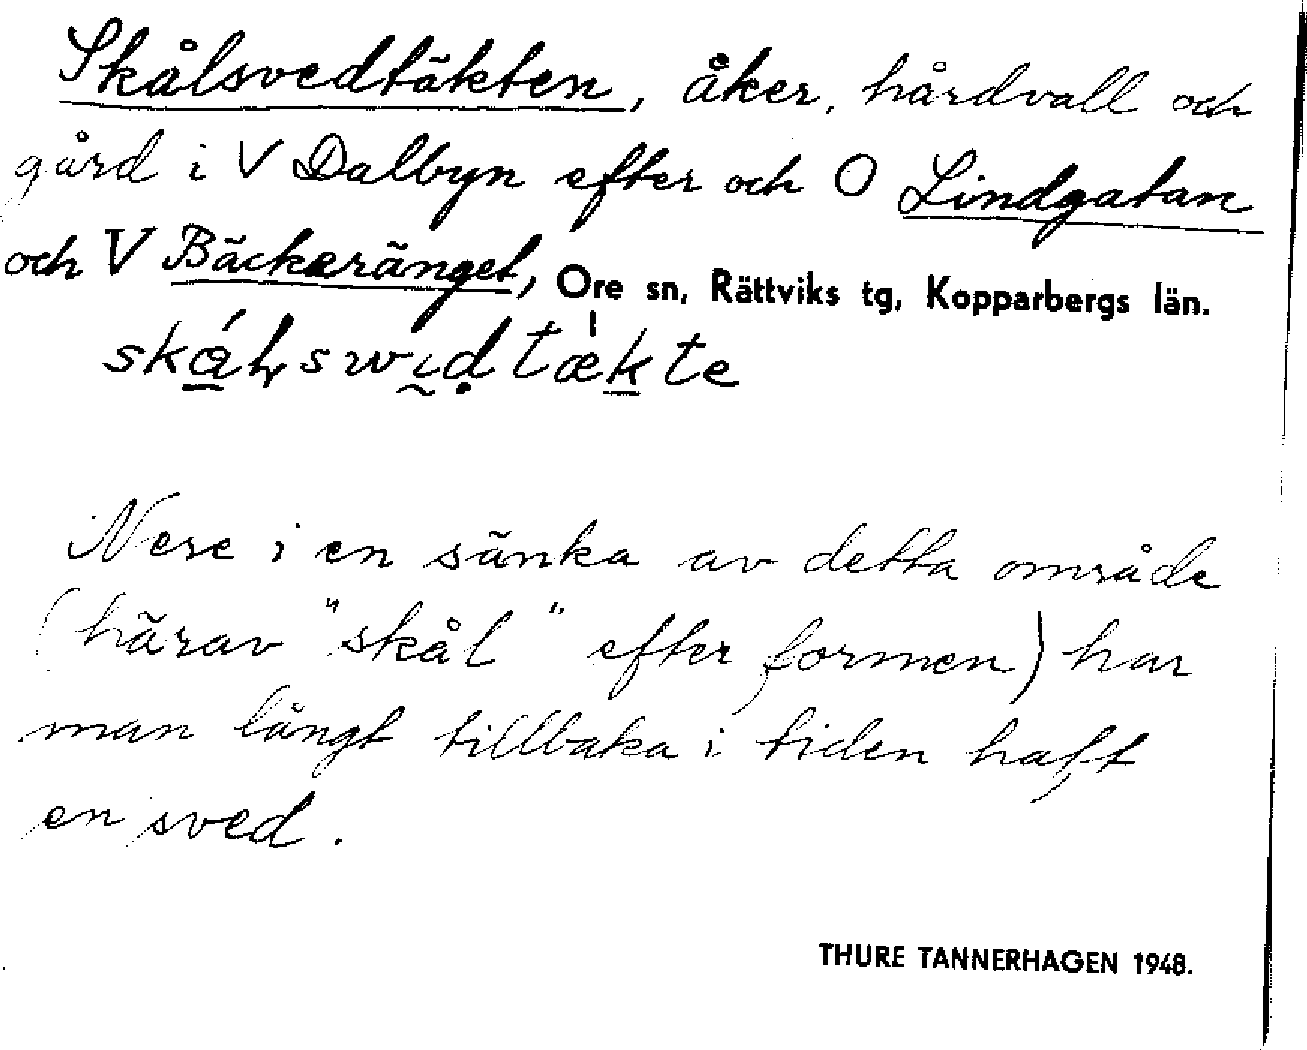 Skålsvedtäkten, åker, hårdvall och
gård i V Dalbyn efter och O Lindgatan
och V Bäckeränget, Ore sn, Rättviks tg, Kopparbergs län.
Nere i en sänka av detta område
(härav "skål" efter formen) har
man långt tillbaka i tiden haft
en sved.
THURE TANNERHAGEN 1948.